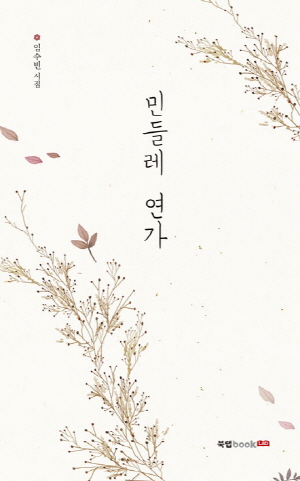 임수빈 시집
민들레 연가
북랩book LAB